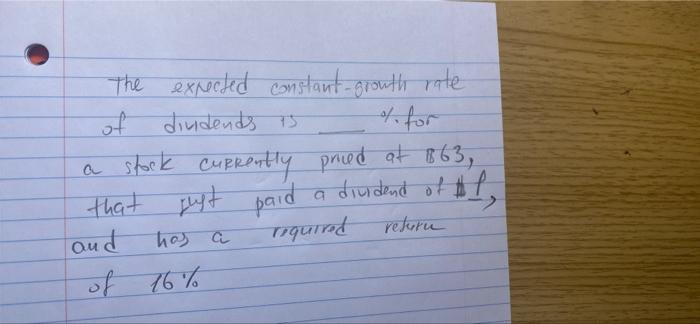 The expected constant-growth rate
of dividends is ___ % for
a stock currently priced at $63,
that just paid a dividend of
and has a required return
of 16%